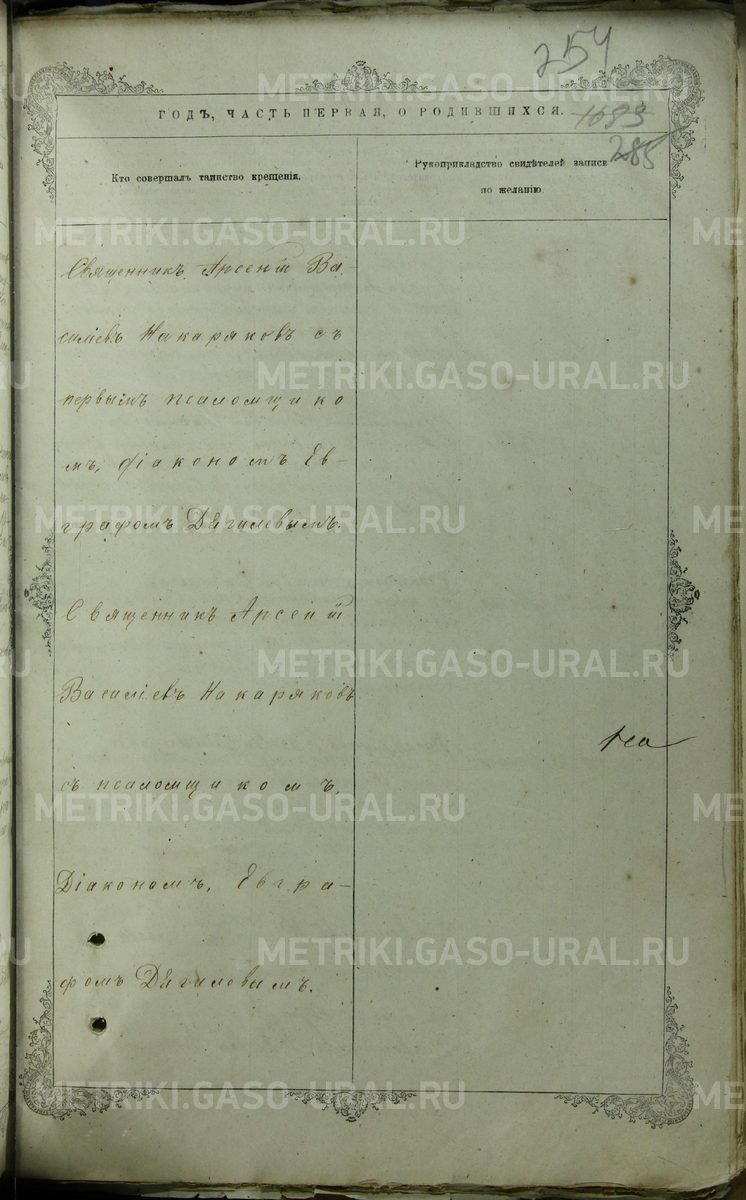 254
ГОДЪ, ЧАСТЬ ПЕРВАЯ, О РОДИВШИХСЯ.
1093
285
Кто совершалъ таинство крещенія.
Рукоприкладство свидѣтелей записи
по желанію.
Священникъ Арсеній Ва-
силіевъ Накаряковъ съ
первымъ псаломщико
мъ, діакономъ Ев-
графомъ Дягилевымъ.
Священникъ Арсеній
Василіевъ Накаряковъ
съ псаломщикомъ,
Діакономъ, Евгра-
фомъ Дягилевымъ.
METRIKI.GASO-URAL.RU